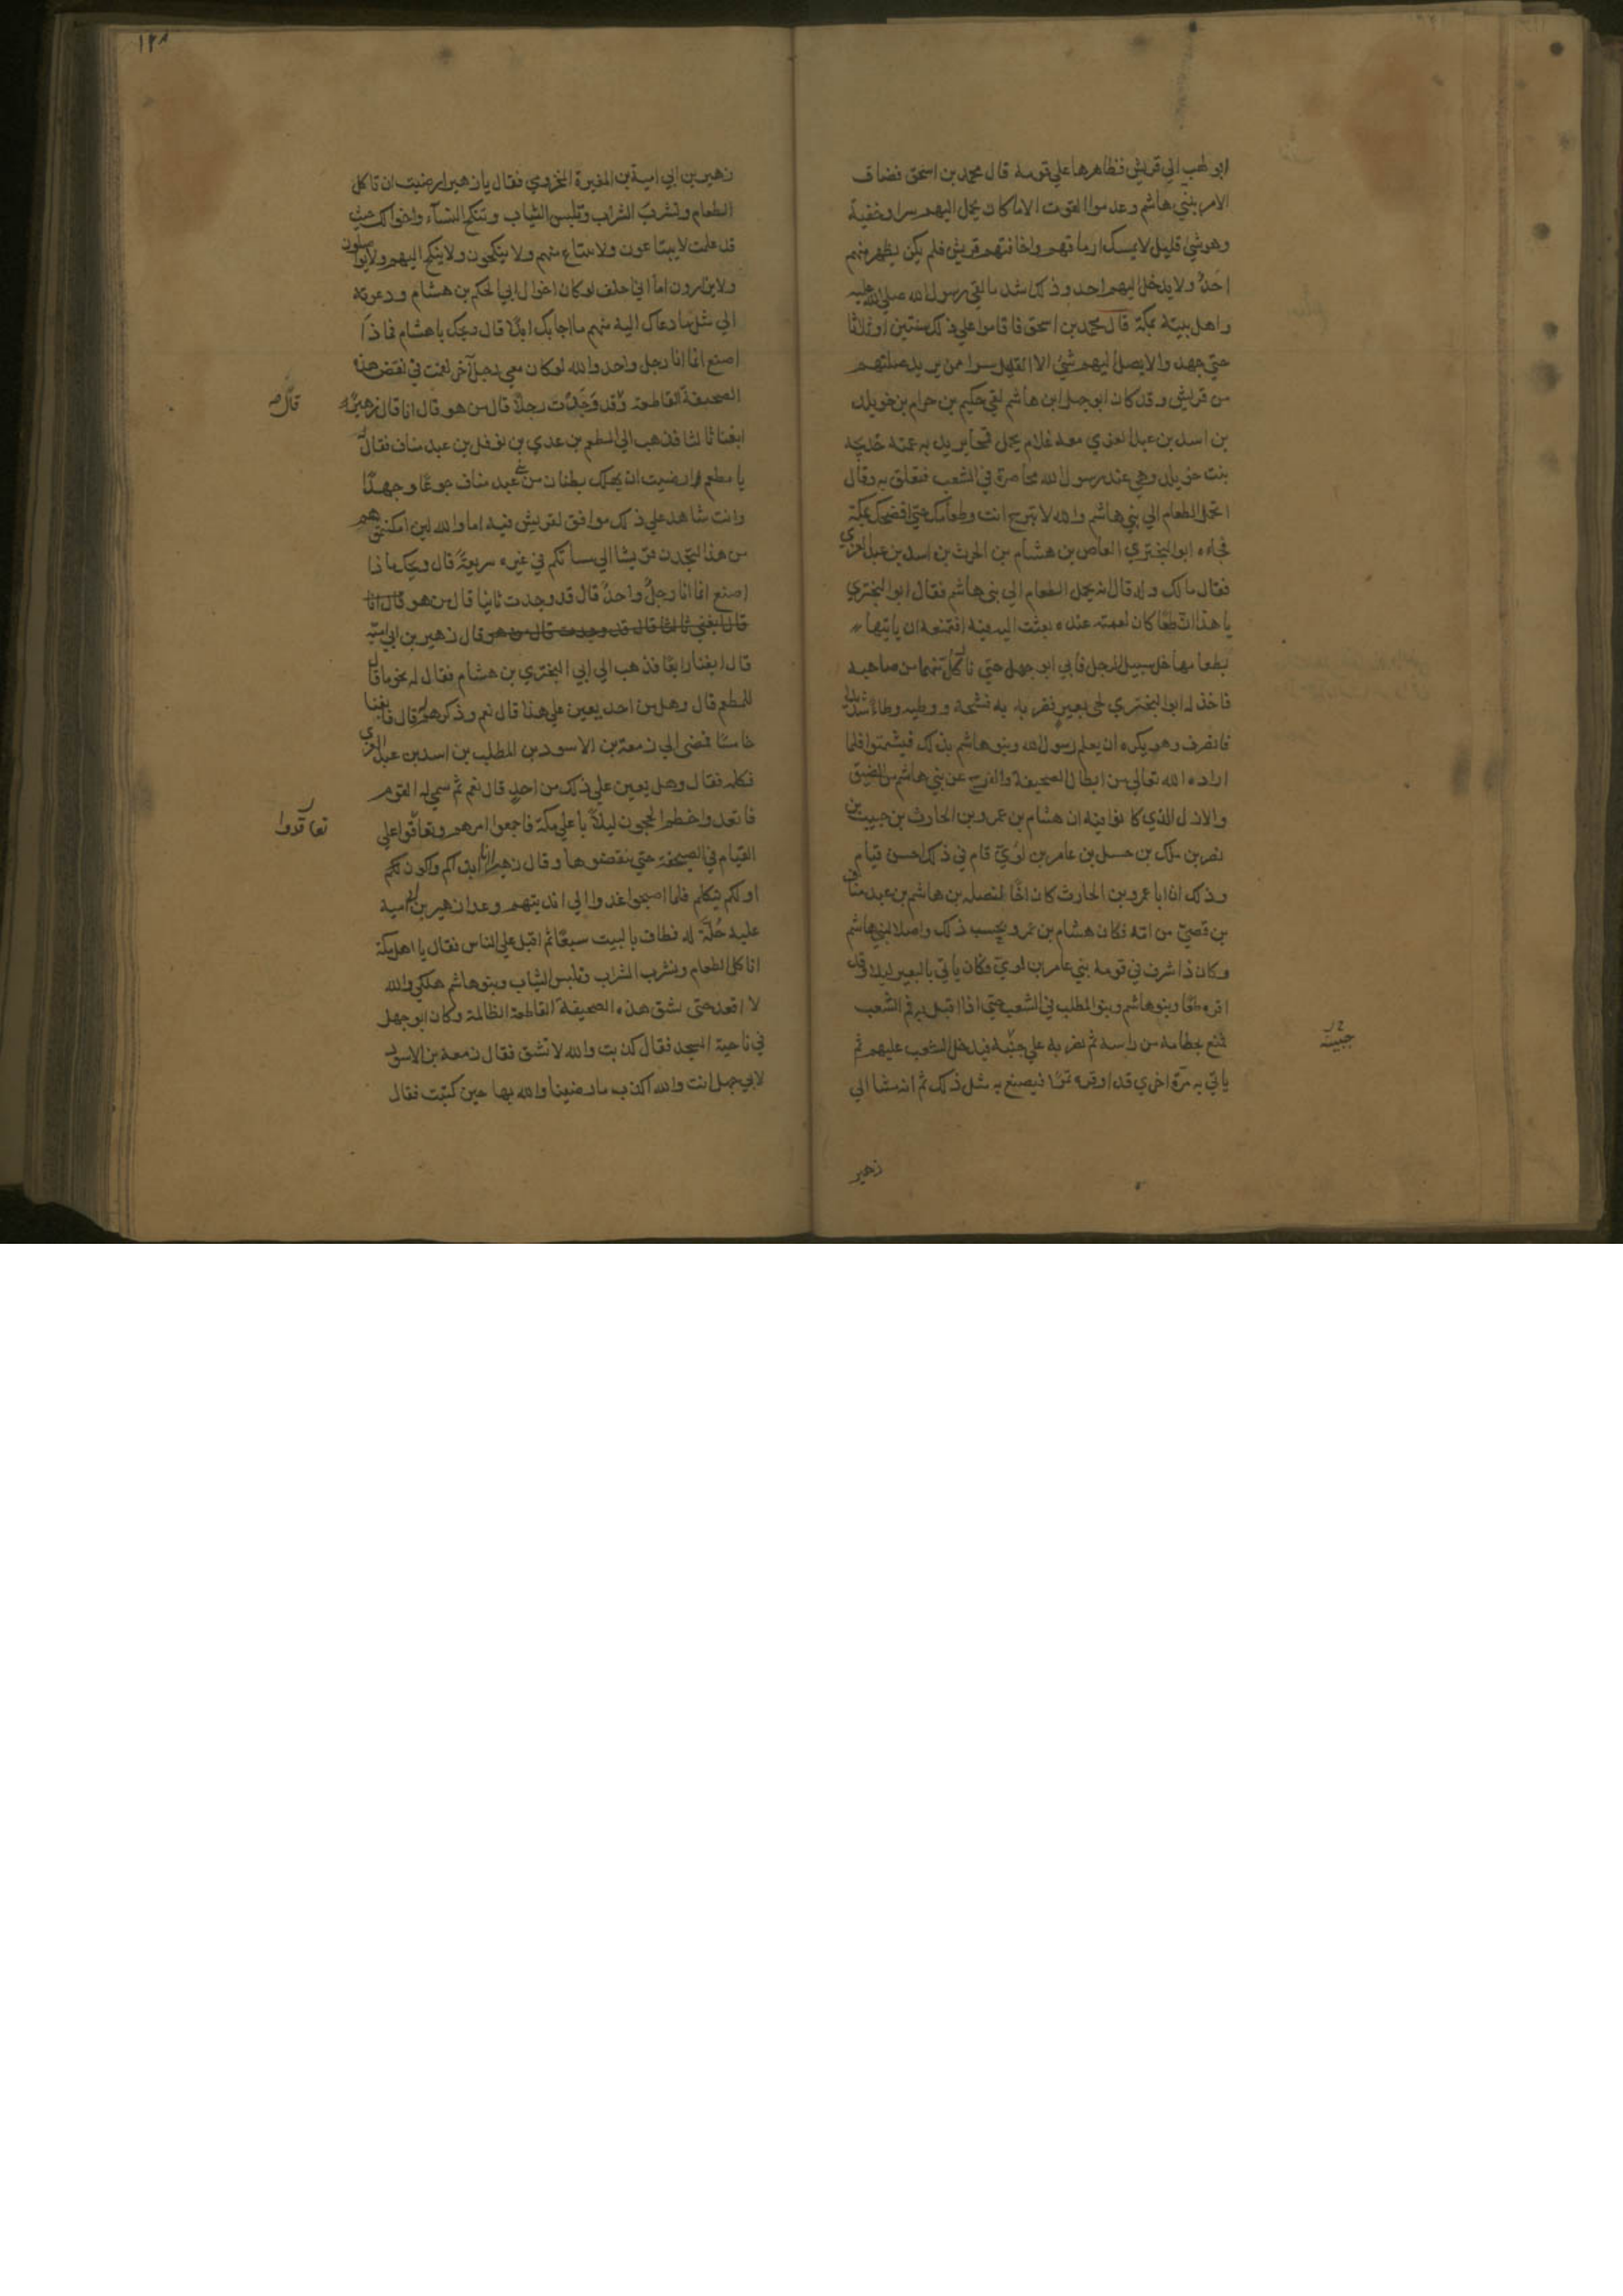 ابو لهب الي قريش فظاهرها علي قومه قال محمد بن اسحق فضاف
الامر ببني هاشم وعدموا القوت الا ما كان يحمل اليهم سرا وخفية
وهو شي قليل لا يمسك ارماقهم واخافتهم قريش فلم يكن يظهر منهم
احدٌ ولا يدخل اليهم احد وذلك اشد ما لقي رسول الله صلي الله عليه
واهل بيته بمكة قال محمد بن اسحق فاقاموا علي ذلك سنتين او ثلاثا
حتي جهدوا لا يصل اليهم شي الا القليل سرا ممن يريد صلتهم
من قريش وقد كان ابو جهل ابن هاشم لقي حكيم بن حزام بن خويلد
بن اسد بن عبد العزي معه غلام يحمل قمحا يريد به عمته خديجة
بنت خويلد وهي عند رسول الله محاصرة في الشعب فتعلق به وقال
اتحمل الطعام الي بني هاشم والله لا تبرح انت وطعامك حتي افضحك بمكة
فجاءه ابو البختري العاص بن هشام بن الحرث بن اسد بن عبد العزي
فقال مالك وله قال انه يحمل الطعام الي بني هاشم فقال ابو البختري
يا هذا ان طعاما كان لعمته عنده بعثت اليه فيه افتمنعه ان ياتيها
بطعامها خل سبيل الرجل فابي ابو جهل حتي نال كل منهما من صاحبه
فاخذ له ابو البختري لحي بعير فضربه به فشجه ووطيه وطاء شديدا
فانصرف وهو يكره ان يعلم رسول الله وبنو هاشم بذلك فيشمتوا فلما
اراده الله تعالي من ابطال الصحيفة والفرج عن بني هاشم من الضيق
والازل الذي كانوا فيه ان هشام بن عمرو بن الحارث بن حبيب بن
نصر بن ملك بن حسل بن عامر بن لؤيّ قام في ذلك احسن قيام
وذلك ان ابا عمرو بن الحارث كان اخًا لنضله بن هاشم بن عبد مناف
بن قصيّ من امه فكان هشام بن عمرو يحسب ذلك واصلا لبني هاشم
وكان ذا شرف في قومه بني عامر بن لويّ وكان ياتي بالبعير ليلا وقد
اوقره طعاما وبنو هاشم وبنو المطلب في الشعب حتي اذا اقبل به فم الشعب
خلع بخطامه من راسه ثم يضربه علي جنبه فيدخل الشعب عليهم ثم
ياتي به مرّة اخري قد اوقره تمرًا فيصنع به مثل ذلك ثم انه مشا الي
زهير
حبيب
١٢٨
زهير بن ابي امية بن المغيرة المخزومي فقال يا زهير ارضيت ان تاكل
الطعام وتشرب الشراب وتلبس الثياب وتنكح النساء واخوالك حيث
قد علمت لا يبتاعون ولا يبتاع منهم ولا ينكحون ولا ينكح اليهم ولا يواصلون
ولا يزارون اما اني احلف لو كان اخوال ابي الحكم بن هشام ودعوته
الي مثل ما دعاك اليه منهم ما اجابك ابدًا قال ويحك يا هشام فماذا
اصنع انما انا رجل واحد والله لو كان معي رجل آخر لقمت في نقض هذه
الصحيفة القاطعة وقد وَجَدتَ رجلاً قال من هو قال انا قال زهير
قال صح
ابغنا ثالثا فذهب الي المطعم بن عدي بن نوفل بن عبد مناف فقال له
يا مطعم ارضيت ان يهلك بطنان من بني عبد مناف جوعًا وجهدًا
وانت شاهد علي ذلك موافق لقريش فيه اما والله لين امكنتموهم
من هذا لتجدن من يشا الي مساتكم في غيره سريعةً قال ويحك ماذا
اصنع انما انا رجلٌ واحدٌ قال قد وجدت ثانيا قال من هو قال انا
قال ابغني ثالثا قال قد وجدت قال من هو قال زهير بن ابي اميّه
قال ابغنا رابعًا فذهب الي ابي البختري بن هشام فقال له نحو ما قال
للمطعم قال وهل من احد يعين علي هذا قال نعم وذكرهم له قال فابغنا
خامسًا فمضي الي زمعة بن الاسود بن المطلب بن اسد بن عبد العزي
فكلمه فقال وهل يعين علي ذلك من احدٍ قال نعم ثم سمي له القوم
فاتعدوا خطم الحجون ليلاً باعلي مكة فاجمعوا امرهم وتعاقدوا علي
تعاقدوا
القيام في الصحيفة حتي ينقضوها وقال زهير انا ابداكم واكون لكم
اولكم يتكلم فلما اصبحوا غدوا الي انديتهم وغدا زهير بن ابي امية
عليه حُلّة له فطاف بالبيت سبعًا ثم اقبل علي الناس فقال يا اهل مكة
اناكل الطعام ونشرب الشراب ونلبس الثياب وبنو هاشم هلكي والله
لا اقعد حتي تشق هذه الصحيفة القاطعة الظالمة وكان ابو جهل
في ناحية المسجد فقال كذبت والله لا تشق فقال زمعة بن الاسود
لابي جهل انت والله اكذب ما رضينا والله بها حين كتبت فقال